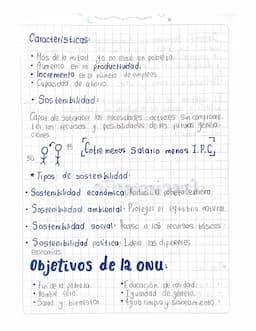 Características:
• Más de la mitad ya no esté en pobreza.
• Aumento en la productividad.
• Incremento en el número de empleos.
• Capacidad de ahorro.
• Sostenibilidad:
Capaz de satisfacer las necesidades actuales sin comprome
ter los recursos y posibilidades de las futuras genera-
ciones.
50 15 [Entre menos Salario menos I.P.C]
* Tipos de sostenibilidad:
• Sostenibilidad económica: Reducir la pobreza extrema
• Sostenibilidad ambiental: Proteger el equilibrio natural
• Sostenibilidad social: Acceso a los recursos básicos
• Sostenibilidad política: Lidera las diferentes
economías.
Objetivos de la ONU:
• Fin de la pobreza. • Educación de calidad.
• Hambre cero. • Igualdad de género.
• Salud y bienestar. • Agua limpia y saneamiento.